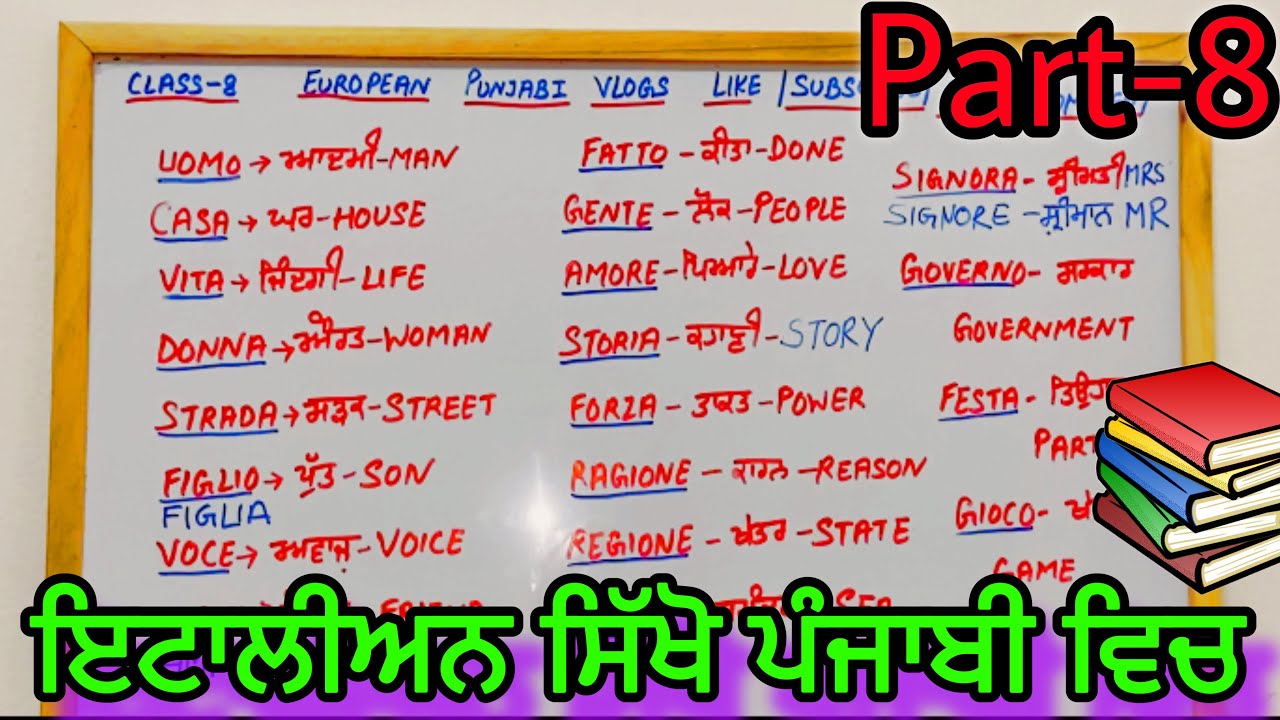 Part-8
CLASS-8 EUROPEAN PUNJABI VLOGS LIKE
UOMO → ਆਦਮੀ-MAN
CASA → ਘਰ-HOUSE
VITA → ਜ਼ਿੰਦਗੀ-LIFE
DONNA → ਔਰਤ-WOMAN
STRADA → ਸੜਕ-STREET
FIGLIO → ਪੁੱਤ-SON
FIGLIA
VOCE → ਅਵਾਜ਼-VOICE
FATTO - ਕੀਤਾ-DONE
GENTE - ਲੋਕ-PEOPLE
AMORE - ਪਿਆਰ-LOVE
STORIA - ਕਹਾਣੀ - STORY
FORZA - ਤਾਕਤ-POWER
RAGIONE - ਕਾਰਨ-REASON
REGIONE - ਖੇਤਰ-STATE
SIGNORA - ਸ਼੍ਰੀਮਤੀ MRS
SIGNORE - ਸ਼੍ਰੀਮਾਨ MR
GOVERNO - ਸਰਕਾਰ
GOVERNMENT
FESTA -
GIOCO -
GAME
ਇਟਾਲੀਅਨ ਸਿੱਖੋ ਪੰਜਾਬੀ ਵਿਚ